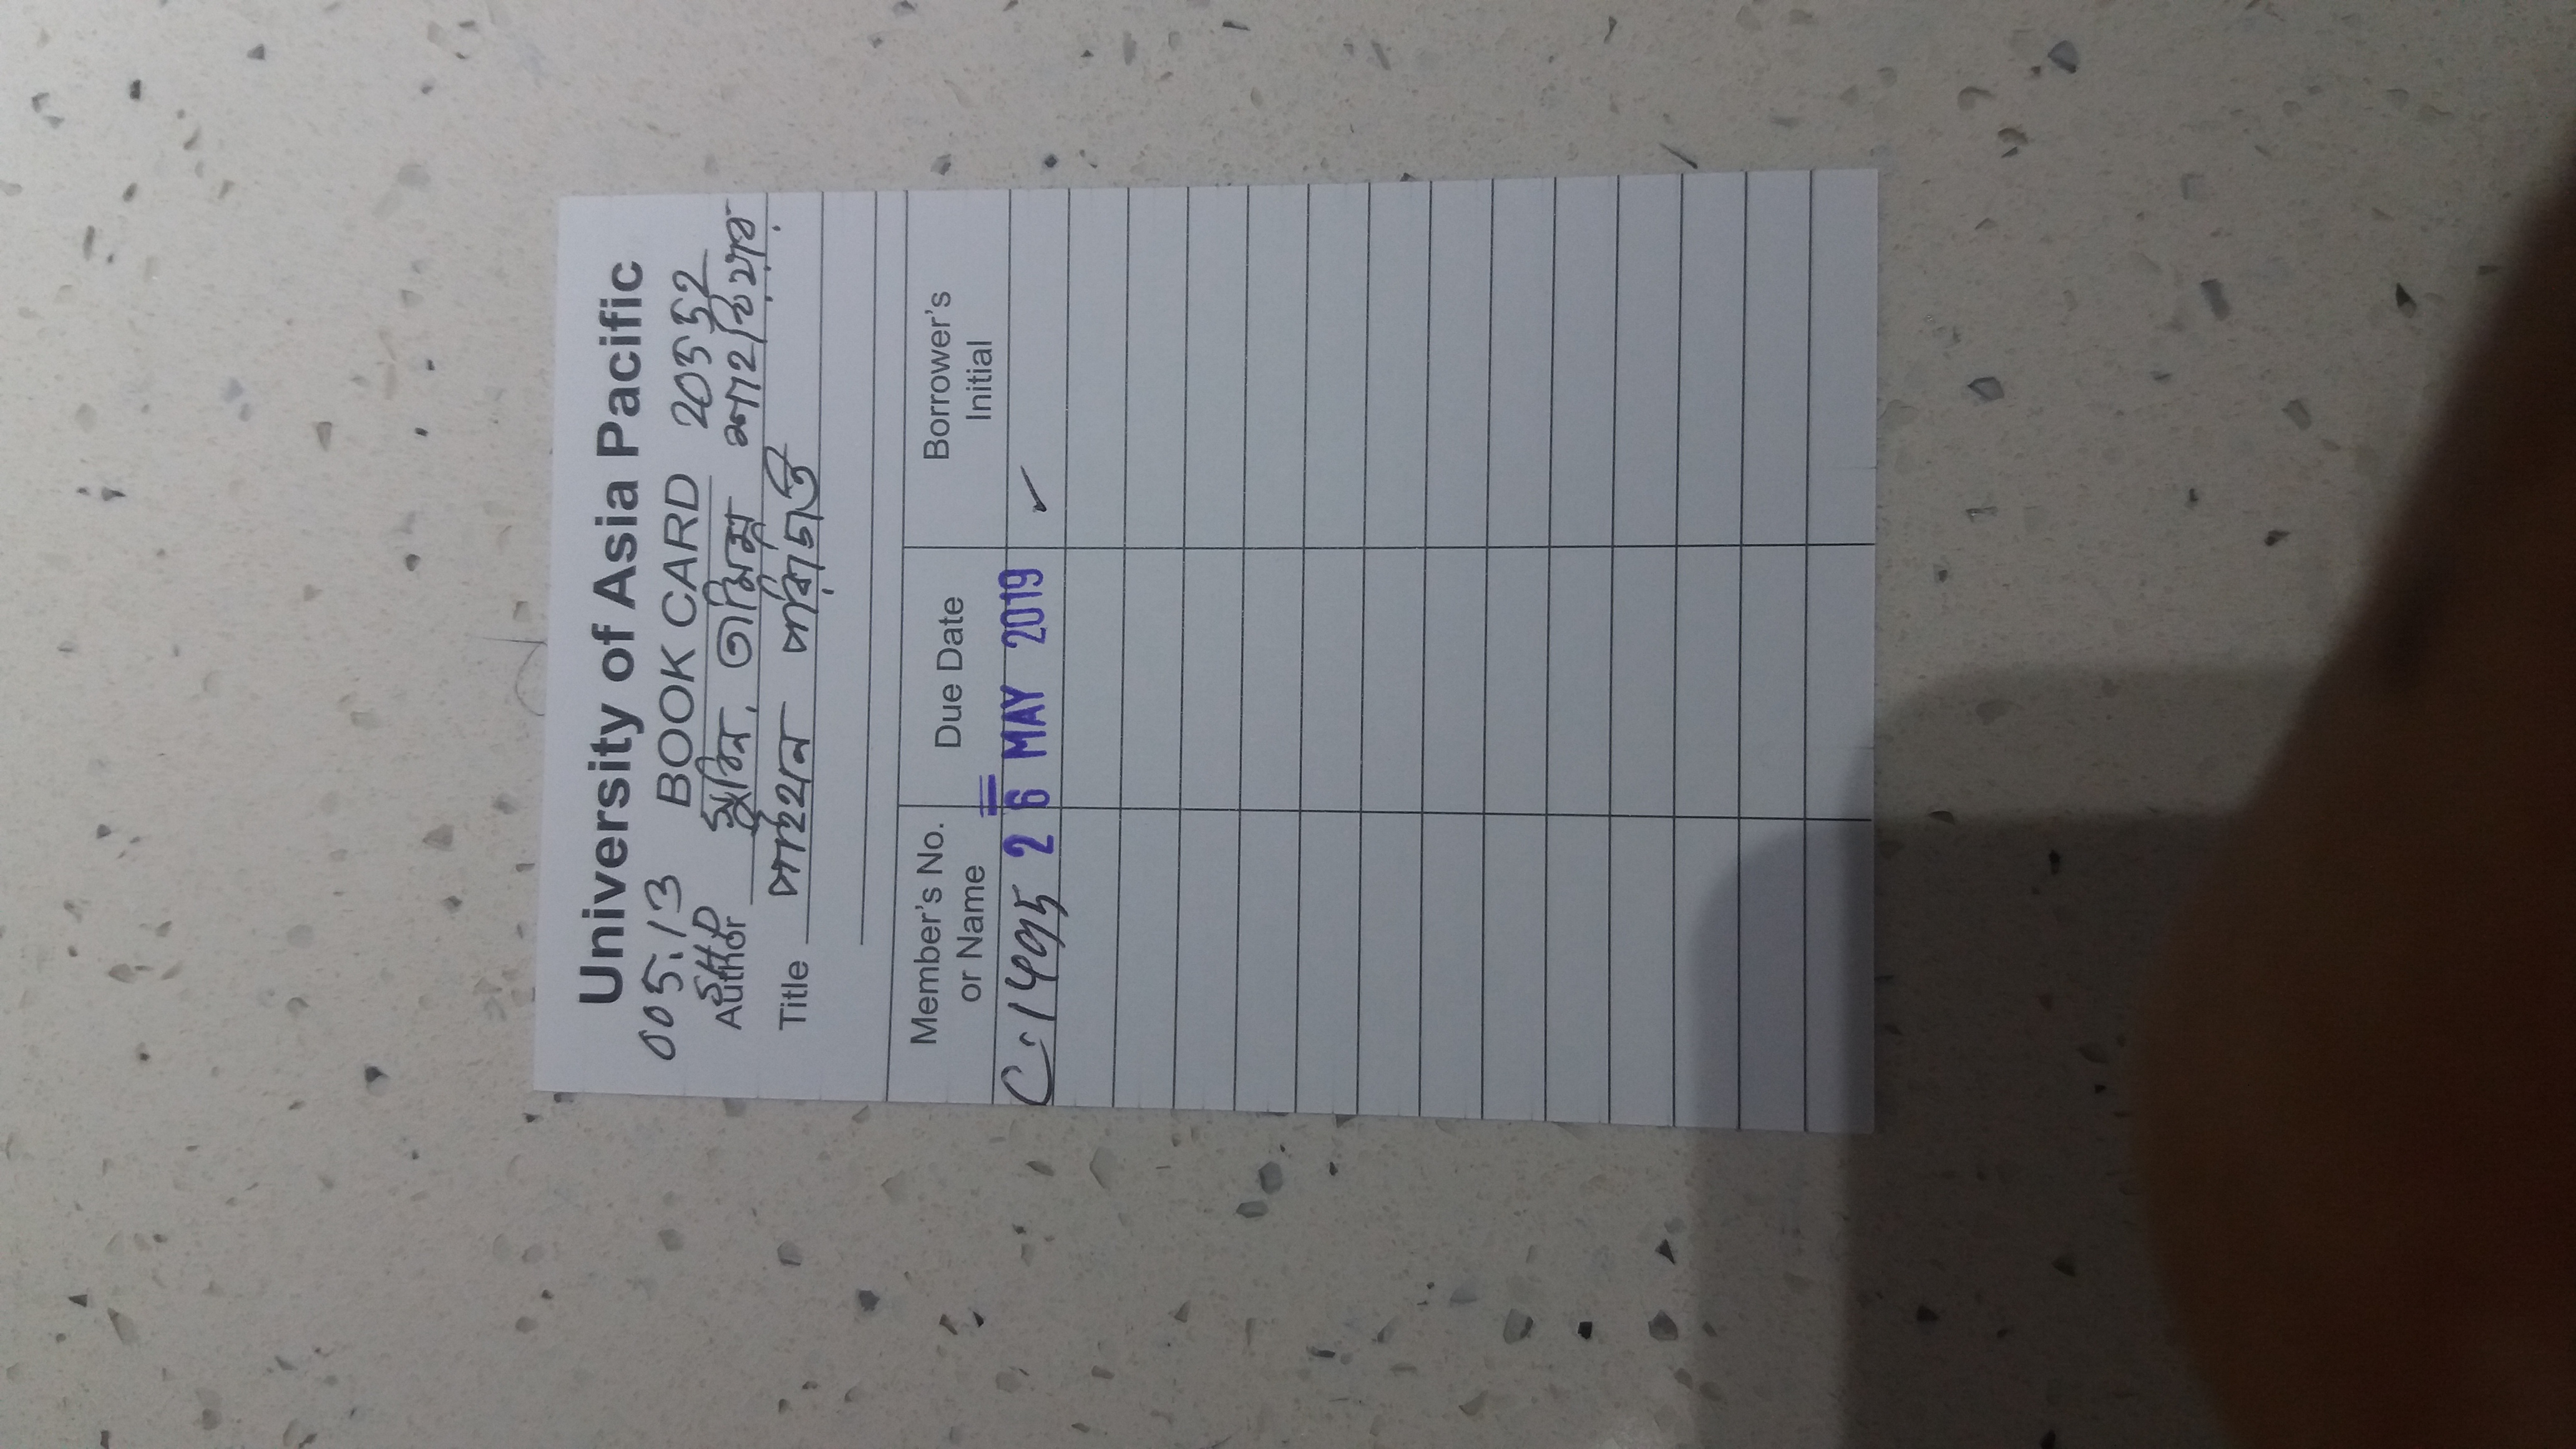 University of Asia Pacific
005.13 BOOK CARD 20552
SHD
Author সুবিন, তামিম শাহরিয়ার
Title পাইথন পরিচিতি
Member's No. or Name Due Date Borrower's Initial
C-1495 26 MAY 2019 ✓